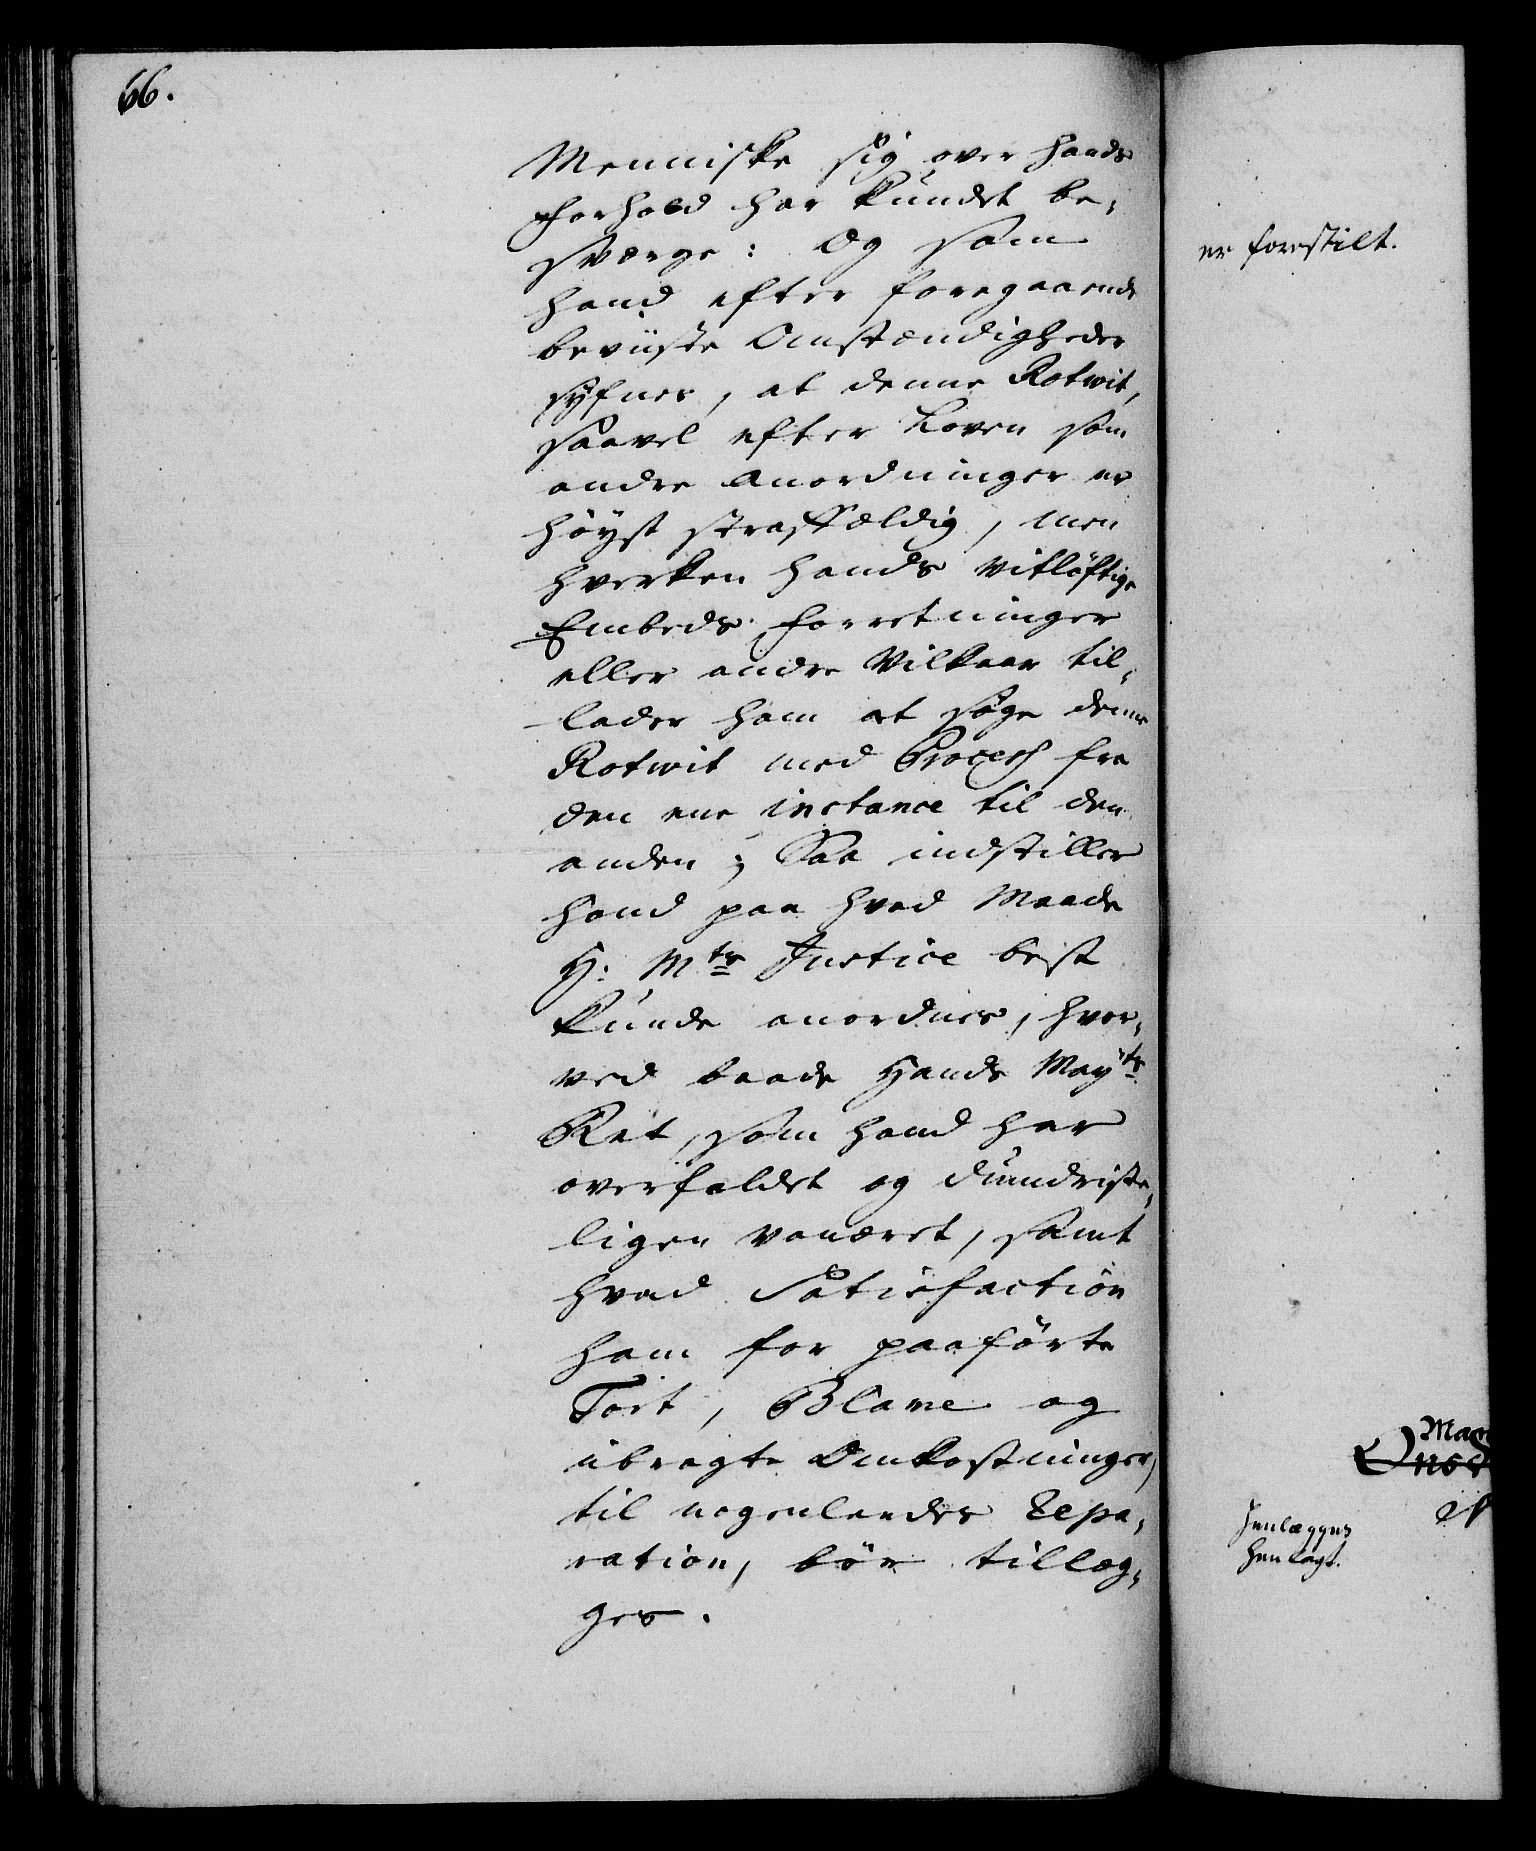 66.
Menniske sig over hands
Forhold har kundet be,
sværge: Og som
hand efter foregaaende
beviiste Omstændigheder
syfnes, at denne Rotwit,
saavel efter Loven som
andre Anordninger er
høyst straffældig, men
hverken hands vitløftige
Embeds Forretninger
eller andre Vilkaar til,
lader ham at søge denne
Rotwit med Process fra
den ene instance til den
anden; Saa indstiller
hand paa hvad Maade
H: Mts Justice best
kunde anordnes, hvor,
ved baade Hands Mayts
Ret, som hand har
overfaldet og dumdriste,
ligen vanæret, samt
hvad Satisfaction
ham for paaførte
Tort, Blame og
ibragte Omkostninger,
til nogenlundes Repa,
ration, bør tillæg,
ges.
er forestilt.
Henlægges
henlagt.